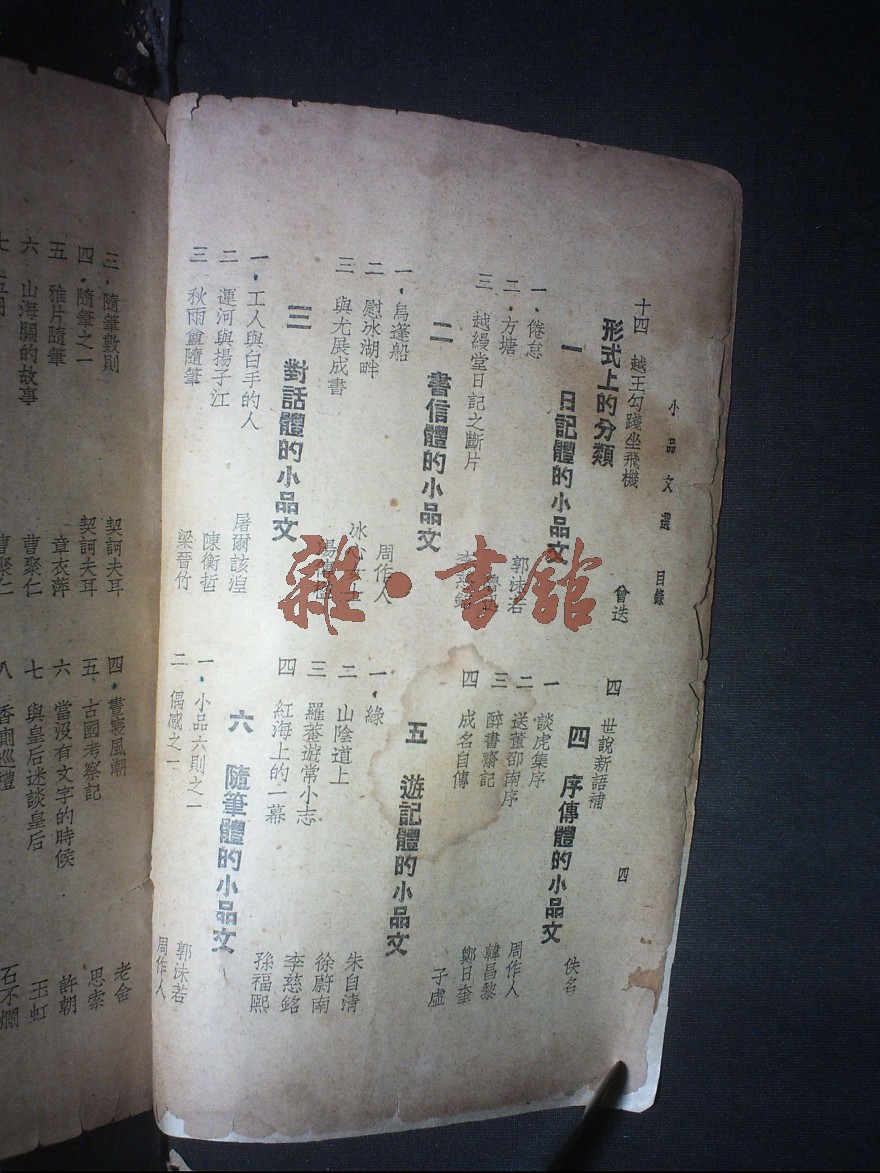 小品文選 目錄 四
十四 越王勾踐坐飛機 曾迭
形式上的分類
一 日記體的小品文
一 倦怠
二 方塘 郭沫若
三 越縵堂日記之斷片
二 書信體的小品文
一 烏蓬船 周作人
二 慰冰湖畔
三 與尤展成書
三 對話體的小品文
一 工人與白手的人 屠爾該涅
二 運河與揚子江 陳衡哲
三 秋雨盦隨筆 梁晉竹
四 世說新語補 佚名
四 序傳體的小品文
一 談虎集序 周作人
二 送董邵南序 韓昌黎
三 醉書齋記 鄭日奎
四 成名自傳 子虛
五 遊記體的小品文
一 綠 朱自清
二 山陰道上 徐蔚南
三 羅菴遊常小志 李慈銘
四 紅海上的一幕 孫福熙
六 隨筆體的小品文
一 小品六則之一 郭沫若
二 偶感之一 周作人
三 隨筆數則 契訶夫耳
四 隨筆之一 契訶夫耳
五 雅片隨筆 章衣萍
六 山海關的故事 曹聚仁
七
曹聚仁
四 書裝風潮 老舍
五 古國考察記 思索
六 當沒有文字的時候 許朝
七 與皇后迷談皇后 王虹
八 香廟巡禮 石不爛
雜·書館